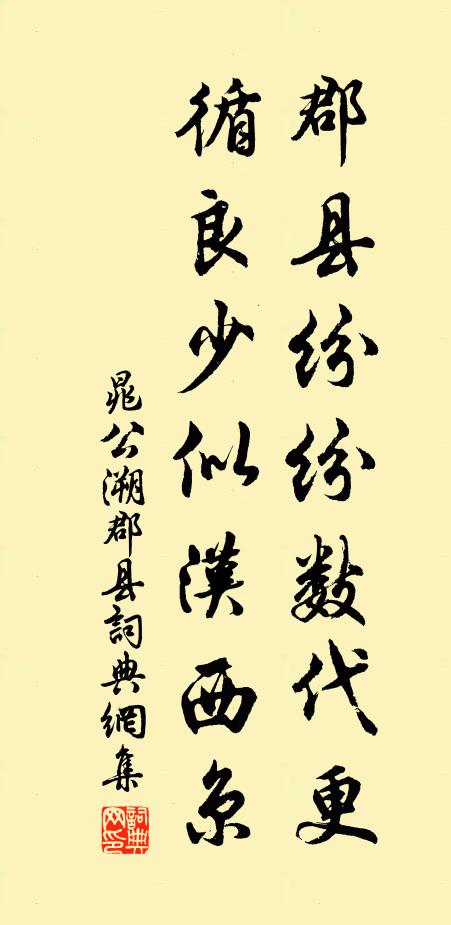 郡县纷纷数代更
循良少似汉西京
晁公溯郡县詞典網集
詞典网印